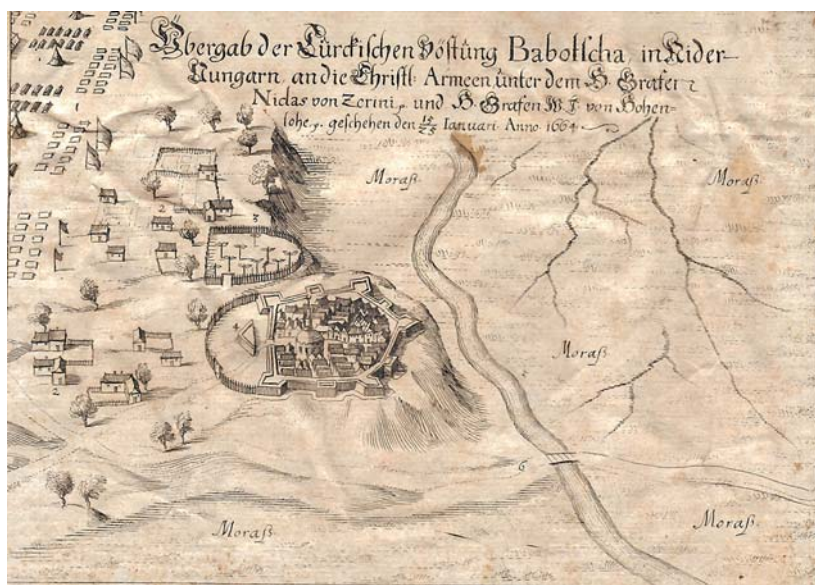 Übergab der Türckischen Vöstung Babotscha, in Nider-
Vungarn, an die Christl: Armeen, unter dem H. Grafen
Niclas von Zerini, und H. Grafen W. J. von Hohen=
lohe, geschehen den 15/25 Ianuari. Anno. 1664
Moraſs.
Moraſs.
2
3
4
Moraſs.
2
6
Moraſs.
Moraſs.